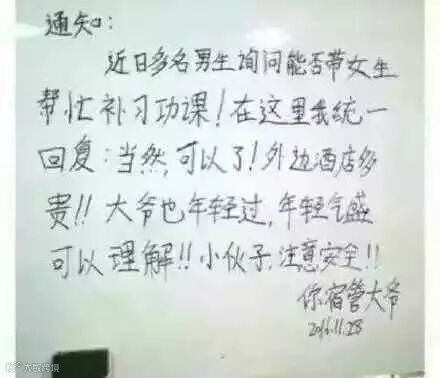 通知:
近日多名男生询问能否带女生
帮忙补习功课!在这里我统一
回复:当然,可以了!外边酒店多
贵!!大爷也年轻过,年轻气盛
可以理解!!小伙子,注意安全!!
你宿管大爷
11.28
大数跨境